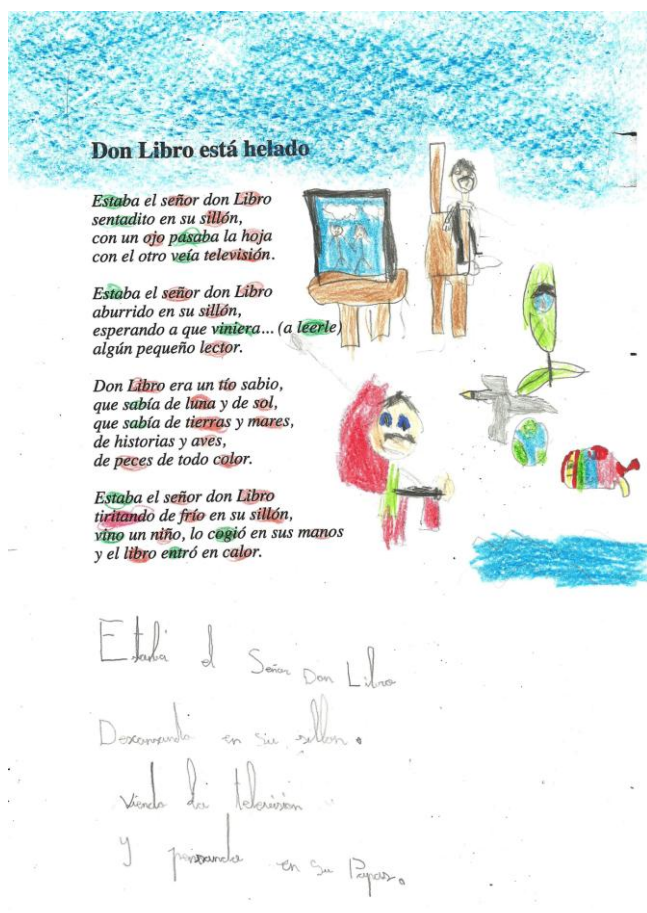 Don Libro está helado
Estaba el señor don Libro
sentadito en su sillón,
con un ojo pasaba la hoja
con el otro veía televisión.
Estaba el señor don Libro
aburrido en su sillón,
esperando a que viniera... (a leerle)
algún pequeño lector.
Don Libro era un tío sabio,
que sabía de luna y de sol,
que sabía de tierras y mares,
de historias y aves,
de peces de todo color.
Estaba el señor don Libro
tiritando de frío en su sillón,
vino un niño, lo cogió en sus manos
y el libro entró en calor.
Estaba el Señor Don Libro
Descansando en su sillon.
viendo la televisión
y pensando en su Papas.